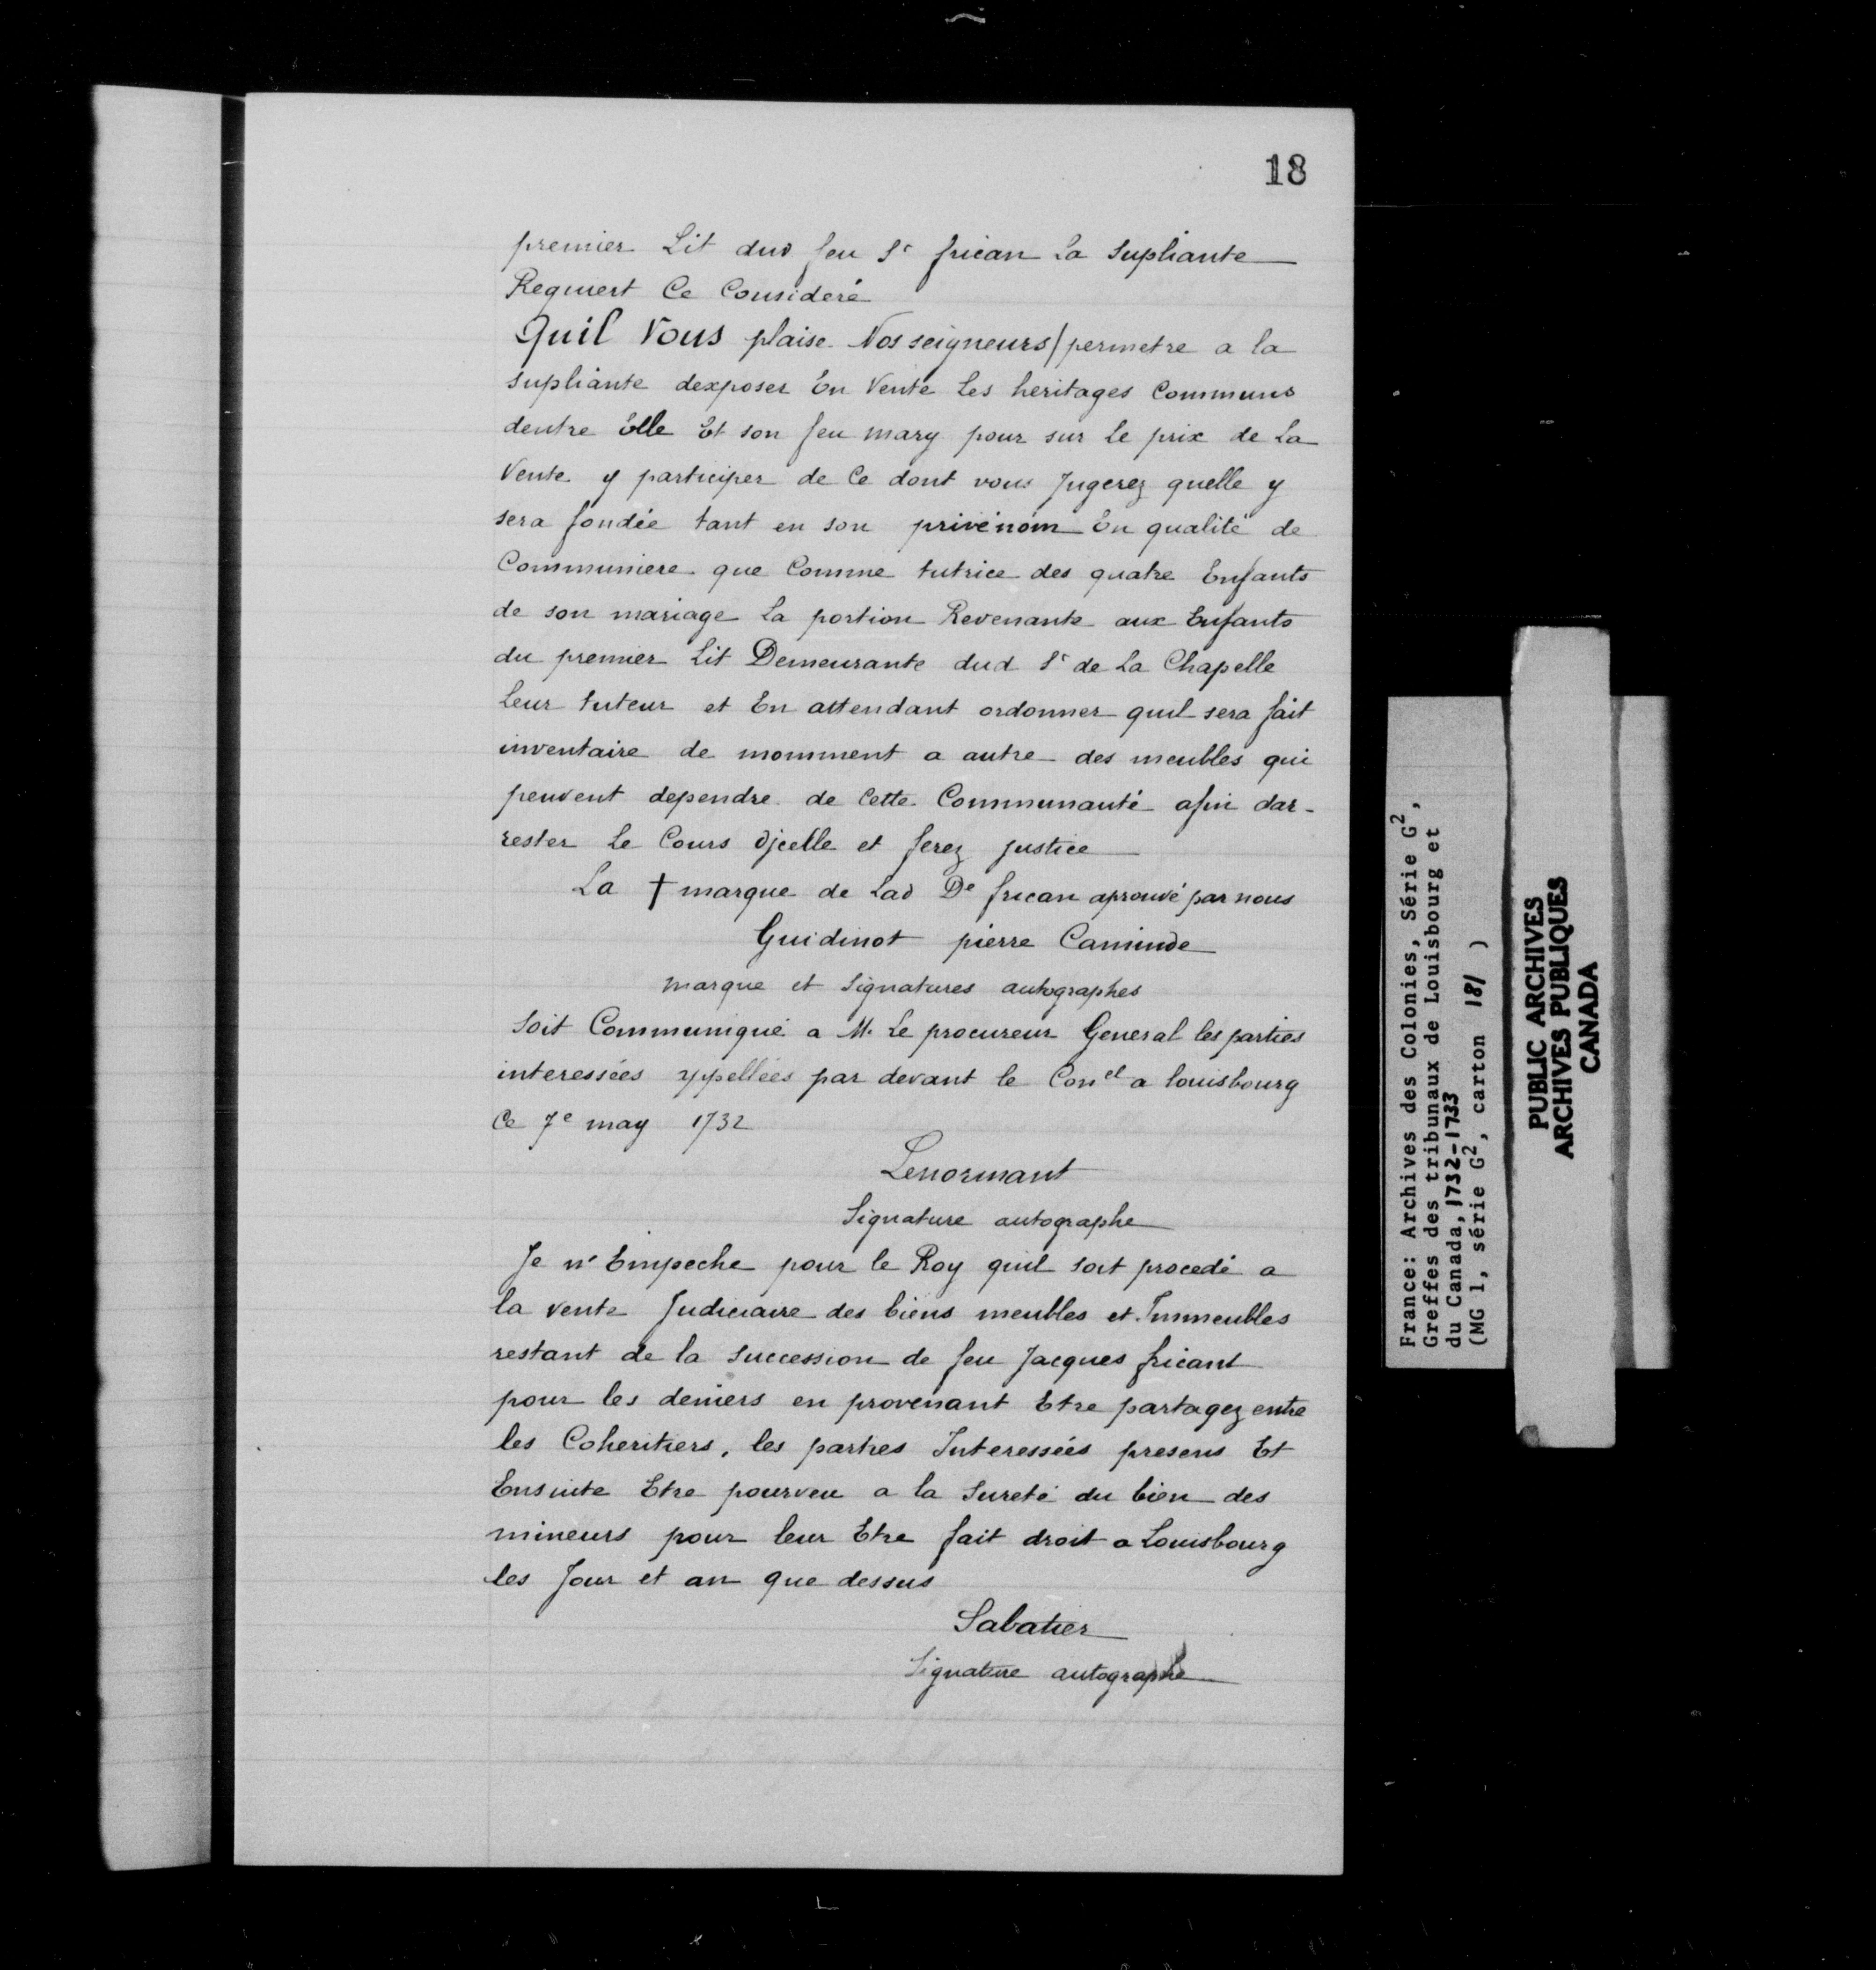 18
premier Lit dud feu Sr frican La Supliante
Requiert Ce Consideré
Quil Vous plaise Nosseigneurs/permetre a la
supliante dexposer En Vente Les heritages Communs
dentre Elle Et son feu mary pour sur Le prix de La
Vente y participer de Ce dont vous Jugerez quelle y
sera fondée tant en son privénom En qualité de
Communiere que Comme tutrice des quatre Enfants
de son mariage La portion Revenante aux Enfants
du premier Lit Demeurante dud Sr de La Chapelle
Leur tuteur et En attendant ordonner quil sera fait
inventaire de momment a autre des meubles qui
peuvent dependre de Cette Communauté afin dar-
rester Le Cours djcelle et ferez justice
La † marque de Lad De frican aprouvé par nous
Guidinot pierre Caminde
marque et signatures autographes
Soit Communiqué a M. Le procureur General les parties
interessées appellées par devant le Conel a louisbourg
Ce 7e may 1732
Lenormant
Signature autographe
Je n'Empeche pour le Roy quil soit procedé a
la vente Judiciaire des biens meubles et Immeubles
restant de la succession de feu Jacques fricant
pour les deniers en provenant Etre partagez entre
les Coheritiers, les parties Interessées presens Et
Ensuite Etre pourveu a la Sureté du bien des
mineurs pour leur Etre fait droit a Louisbourg
les Jour et an que dessus
Sabatier
Signature autographe
France: Archives des Colonies, Série G2,
Greffes des tribunaux de Louisbourg et
du Canada, 1732-1733
(MG 1, série G2, carton 181 )
PUBLIC ARCHIVES
ARCHIVES PUBLIQUES
CANADA